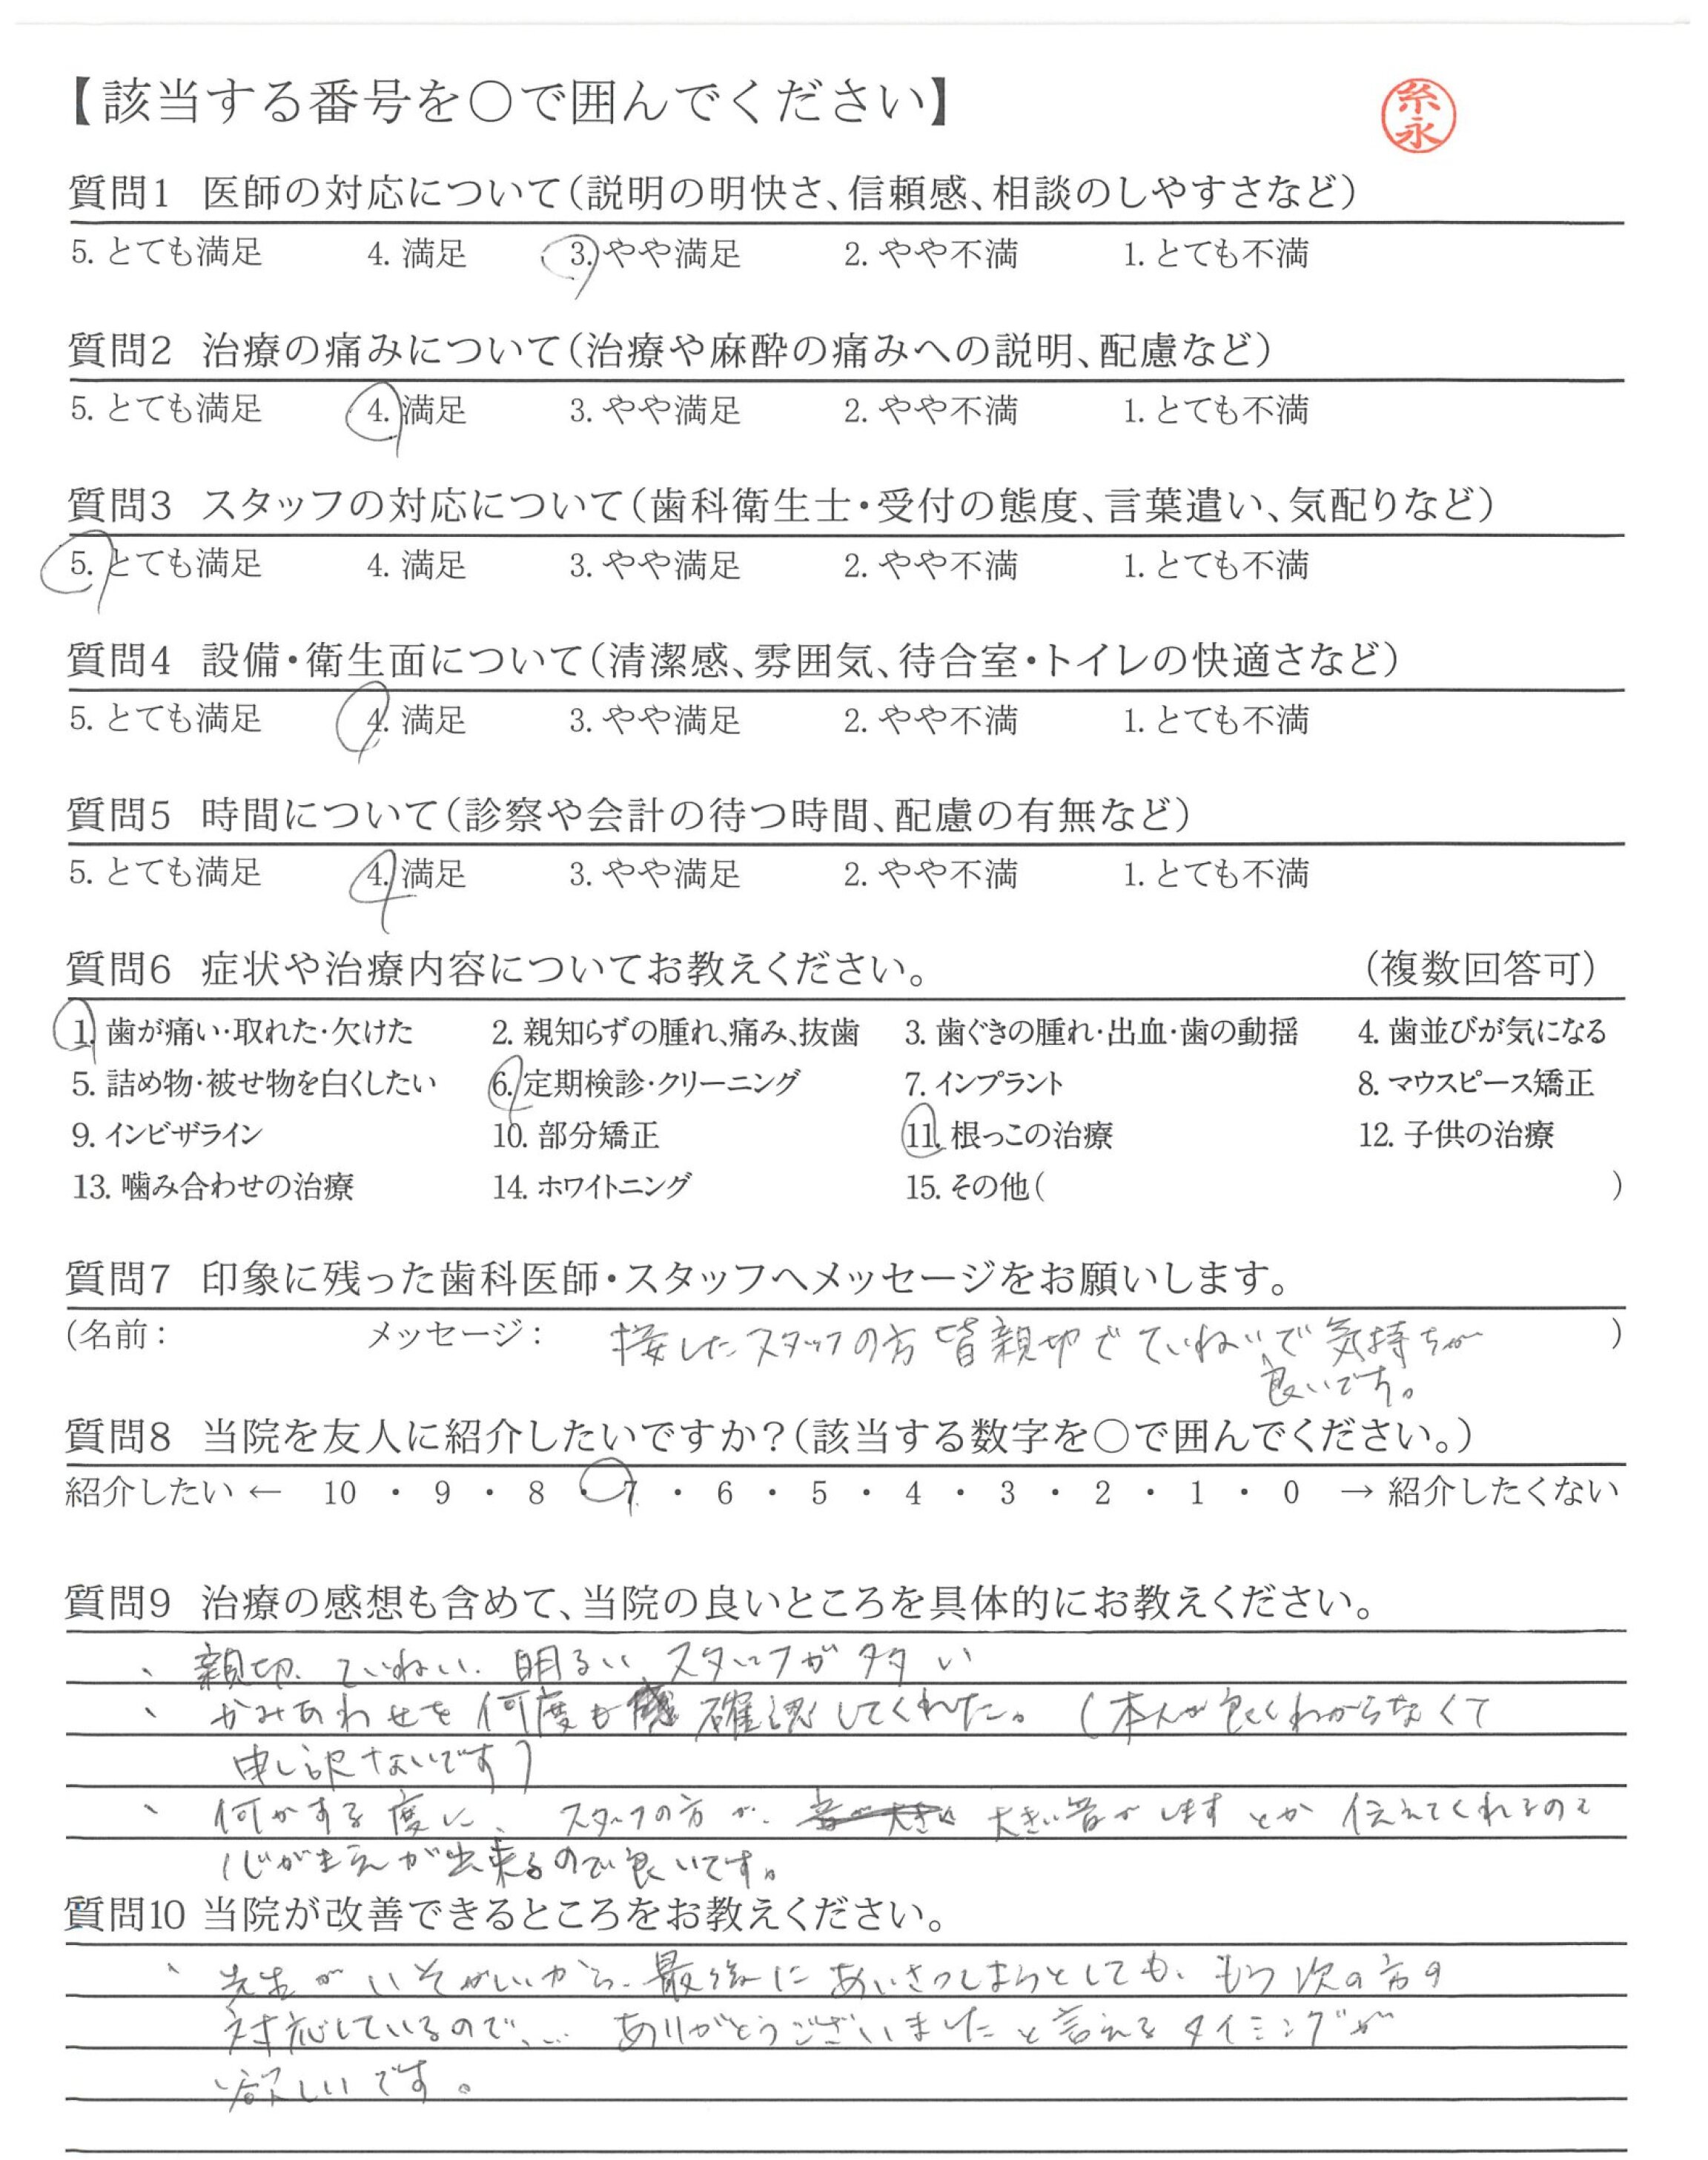 【該当する番号を○で囲んでください】
糸永
質問1 医師の対応について(説明の明快さ、信頼感、相談のしやすさなど)
5. とても満足 4. 満足 3. やや満足 2. やや不満 1. とても不満
質問2 治療の痛みについて(治療や麻酔の痛みへの説明、配慮など)
5. とても満足 4. 満足 3. やや満足 2. やや不満 1. とても不満
質問3 スタッフの対応について(歯科衛生士・受付の態度、言葉遣い、気配りなど)
5. とても満足 4. 満足 3. やや満足 2. やや不満 1. とても不満
質問4 設備・衛生面について(清潔感、雰囲気、待合室・トイレの快適さなど)
5. とても満足 4. 満足 3. やや満足 2. やや不満 1. とても不満
質問5 時間について(診察や会計の待つ時間、配慮の有無など)
5. とても満足 4. 満足 3. やや満足 2. やや不満 1. とても不満
質問6 症状や治療内容についてお教えください。 (複数回答可)
1. 歯が痛い・取れた・欠けた 2. 親知らずの腫れ、痛み、抜歯 3. 歯ぐきの腫れ・出血・歯の動揺 4. 歯並びが気になる
5. 詰め物・被せ物を白くしたい 6. 定期検診・クリーニング 7. インプラント 8. マウスピース矯正
9. インビザライン 10. 部分矯正 11. 根っこの治療 12. 子供の治療
13. 噛み合わせの治療 14. ホワイトニング 15. その他( )
質問7 印象に残った歯科医師・スタッフへメッセージをお願いします。
(名前: メッセージ: 接したスタッフの方皆親切でていねいで気持ちが )
良いです。
質問8 当院を友人に紹介したいですか?(該当する数字を○で囲んでください。)
紹介したい ← 10 ・ 9 ・ 8 ・ 7 ・ 6 ・ 5 ・ 4 ・ 3 ・ 2 ・ 1 ・ 0 → 紹介したくない
質問9 治療の感想も含めて、当院の良いところを具体的にお教えください。
、親切、ていねい、明るいスタッフが多い
、かみあわせを何度も確認してくれた。(本人が良くわからなくて
申し訳ないです)
、何かする度に、スタッフの方が、大きい音がしますとか伝えてくれるので
心がまえが出来るので良いです。
質問10 当院が改善できるところをお教えください。
、先生がいそがしいから、最後にあいさつしようとしても、もう次の方の
対応しているので、… ありがとうございましたと言えるタイミングが
欲しいです。